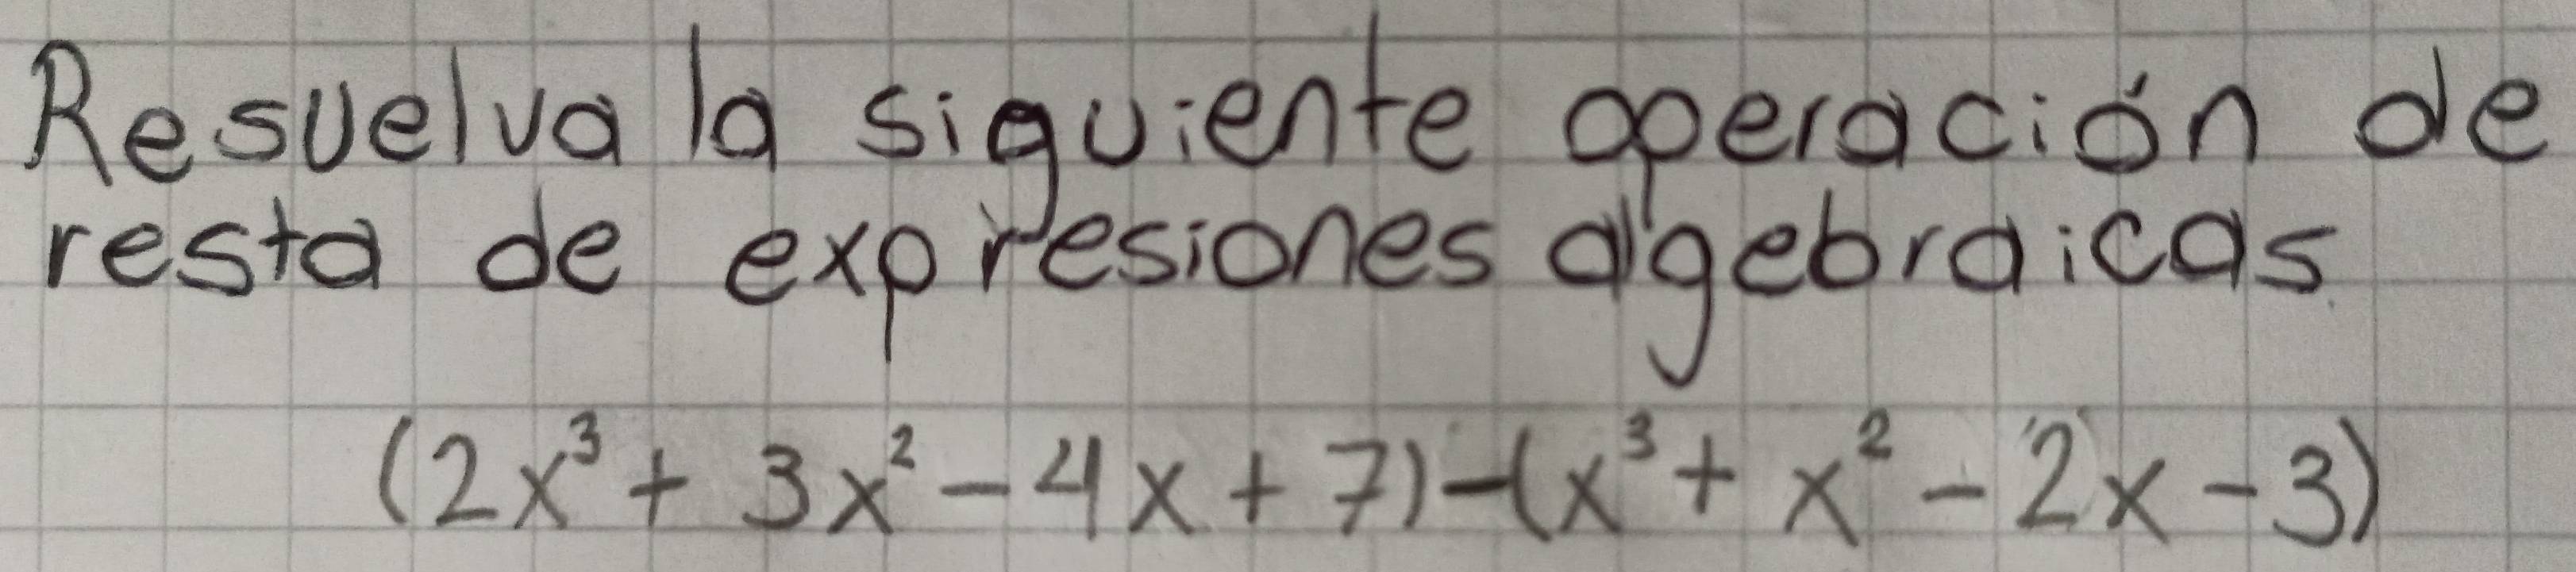 Resuelva la siguiente operación de
resta de expresiones algebraicas
(2x³ + 3x² - 4x + 7) - (x³ + x² - 2x - 3)